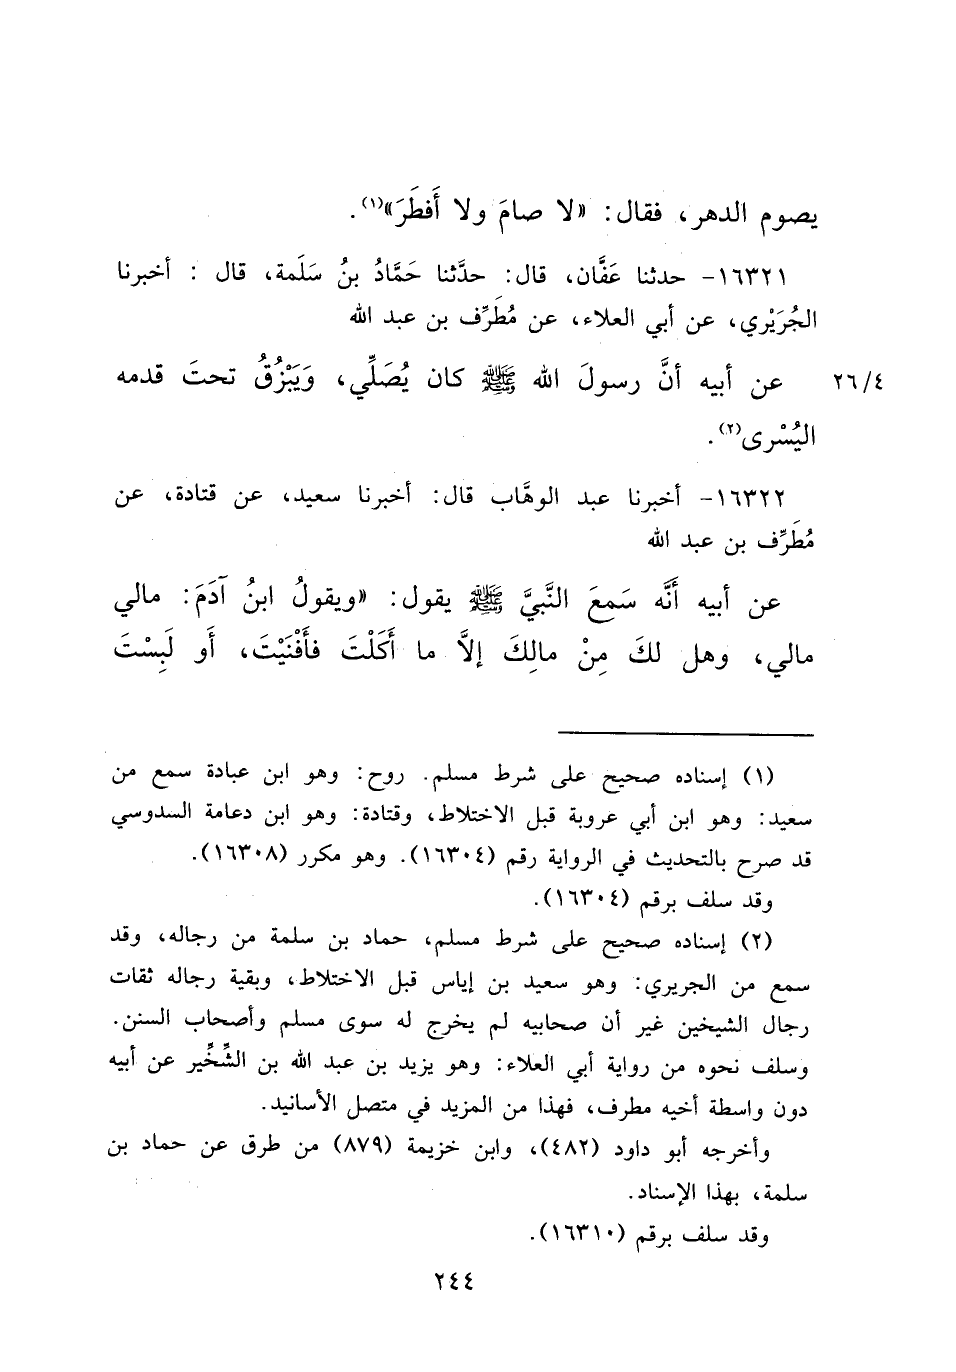 يصوم الدهر، فقال: «لا صامَ ولا أَفطَرَ»(١).
١٦٣٢١- حدثنا عَفَّان، قال: حدَّثنا حَمَّادُ بنُ سَلَمة، قال : أخبرنا
الجُرَيْري، عن أبي العلاء، عن مُطَرِّف بن عبد الله
عن أبيه أنَّ رسولَ الله ﷺ كان يُصَلِّي، وَيَبْزُقُ تحتَ قدمه
٢٦/٤
اليُسْرى(٢).
١٦٣٢٢- أخبرنا عبد الوهَّاب قال: أخبرنا سعيد، عن قتادة، عن
مُطَرِّف بن عبد الله
عن أبيه أَنَّه سَمعَ النَّبيَّ ﷺ يقول: «ويقولُ ابنُ آدَمَ: مالي
مالي، وهل لكَ مِنْ مالِكَ إلاَّ ما أَكَلْتَ فأَفْنَيْتَ، أَو لَبِسْتَ
(١) إسناده صحيح على شرط مسلم. روح: وهو ابن عبادة سمع من
سعيد: وهو ابن أبي عروبة قبل الاختلاط، وقتادة: وهو ابن دعامة السدوسي
قد صرح بالتحديث في الرواية رقم (١٦٣٠٤). وهو مكرر (١٦٣٠٨).
وقد سلف برقم (١٦٣٠٤).
(٢) إسناده صحيح على شرط مسلم، حماد بن سلمة من رجاله، وقد
سمع من الجريري: وهو سعيد بن إياس قبل الاختلاط، وبقية رجاله ثقات
رجال الشيخين غير أن صحابيه لم يخرج له سوى مسلم وأصحاب السنن.
وسلف نحوه من رواية أبي العلاء: وهو يزيد بن عبد الله بن الشِّخِّير عن أبيه
دون واسطة أخيه مطرف، فهذا من المزيد في متصل الأسانيد.
وأخرجه أبو داود (٤٨٢)، وابن خزيمة (٨٧٩) من طرق عن حماد بن
سلمة، بهذا الإسناد.
وقد سلف برقم (١٦٣١٠).
٢٤٤